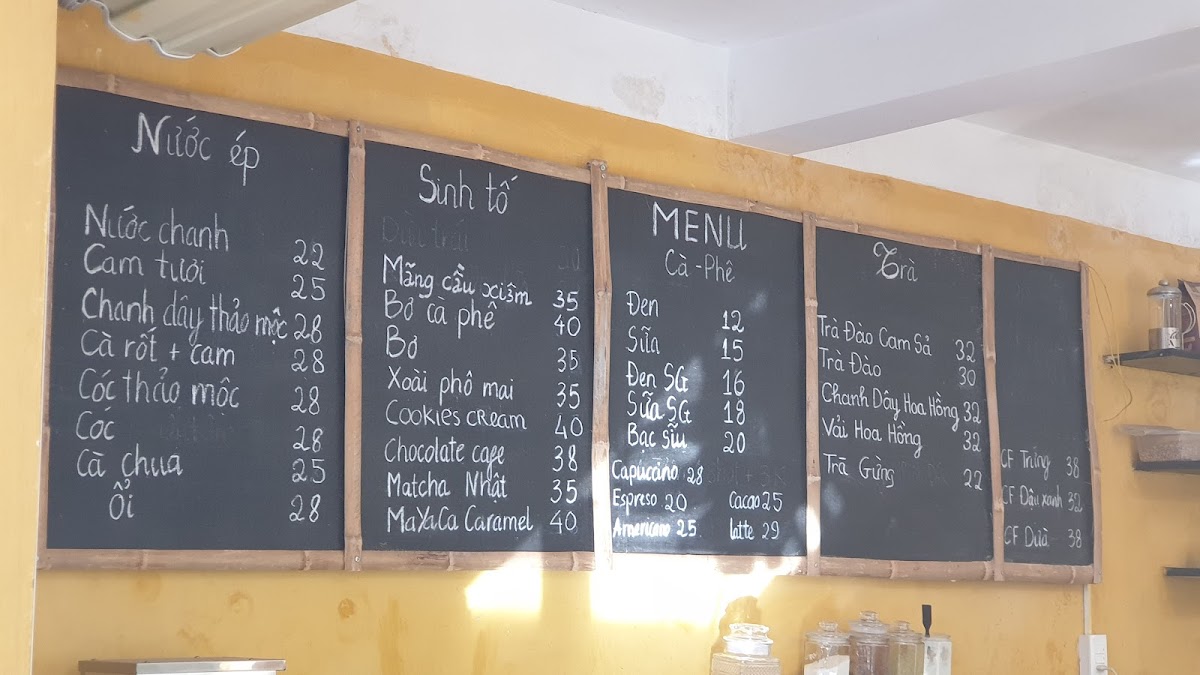 Nước ép
Nước chanh 22
Cam tươi 25
Chanh dây thảo mộc 28
Cà rốt + cam 28
Cóc thảo mộc 28
Cóc 28
Cà chua 25
Ổi 28
Sinh tố
Mãng cầu xiêm 35
Bơ cà phê 40
Bơ 35
Xoài phô mai 35
Cookies cream 40
Chocolate cafe 38
Matcha Nhật 35
MaYaCa Caramel 40
MENU
Cà - Phê
Đen 12
Sữa 15
Đen SG 16
Sữa SG 18
Bạc sỉu 20
Capuccino 28
Espreso 20 Cacao 25
Americano 25 latte 29
Trà
Trà Đào Cam Sả 32
Trà Đào 30
Chanh Dây Hoa Hồng 32
Vải Hoa Hồng 32
Trà Gừng 22
CF Trứng 38
CF Đậu xanh 32
CF Dừa 38